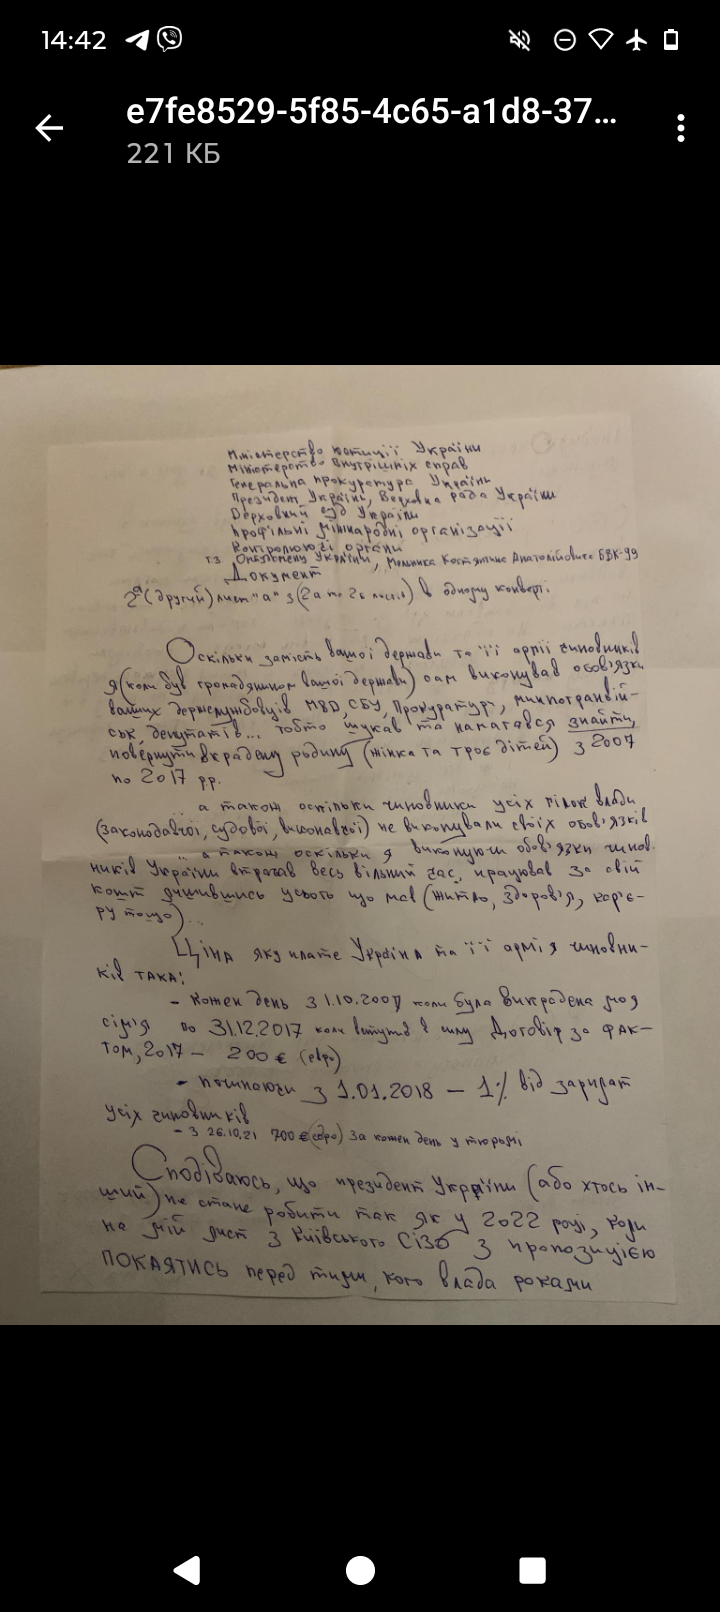 14:42
e7fe8529-5f85-4c65-a1d8-37...
221 КБ
Міністерство юстиції України
Міністерство внутрішніх справ
Генеральна прокуратура України
Президент України, Верховна рада України
Верховний суд України
Профільні міжнародні організації
Контролюючі органи
т.з Омбудсмену України, Мельника Костянтина Анатолійовича БВК-99
Документ
2й (другий) лист "а" з (2а та 2б листів) в одному конверті.
Оскільки замість вашої держави та її армії чиновників
я (коли був громадянином вашої держави) сам виконував обов'язки
ваших держслужбовців МВD, СБУ, Прокуратур,
ськ, депутатів... тобто шукав та намагався знайти,
повернути вкрадену родину (жінка та троє дітей) з 2007
по 2017 рр.
.. а також оскільки чиновники усіх гілок влади
(законодавчої, судової, виконавчої) не виконували своїх обов'язків
.. а також оскільки я виконуючи обов'язки чинов-
ників України втрачав весь вільний час, працював за свій
кошт лишившись усього що мав (житло, здоров'я, кар'є-
ру тощо)...
Ціна яку плате Україна та її армія чиновни-
ків ТАКА:
- Кожен день з 1.10.2007 коли була викрадена моя
сім'я по 31.12.2017 коли вступив в силу Договір за фак-
том, 2017 - 200 € (євро)
- починаючи з 1.01.2018 - 1% від зарплат
усіх чиновників
- з 26.10.21 700 € (євро) за кожен день у тюрьмі
Сподіваюсь, що президент України (або хтось ін-
ший) не стане робити так як у 2022 році, коли
на мій лист з Київського СІЗО з пропозицією
ПОКАЯТИСЬ перед тими, кого влада роками